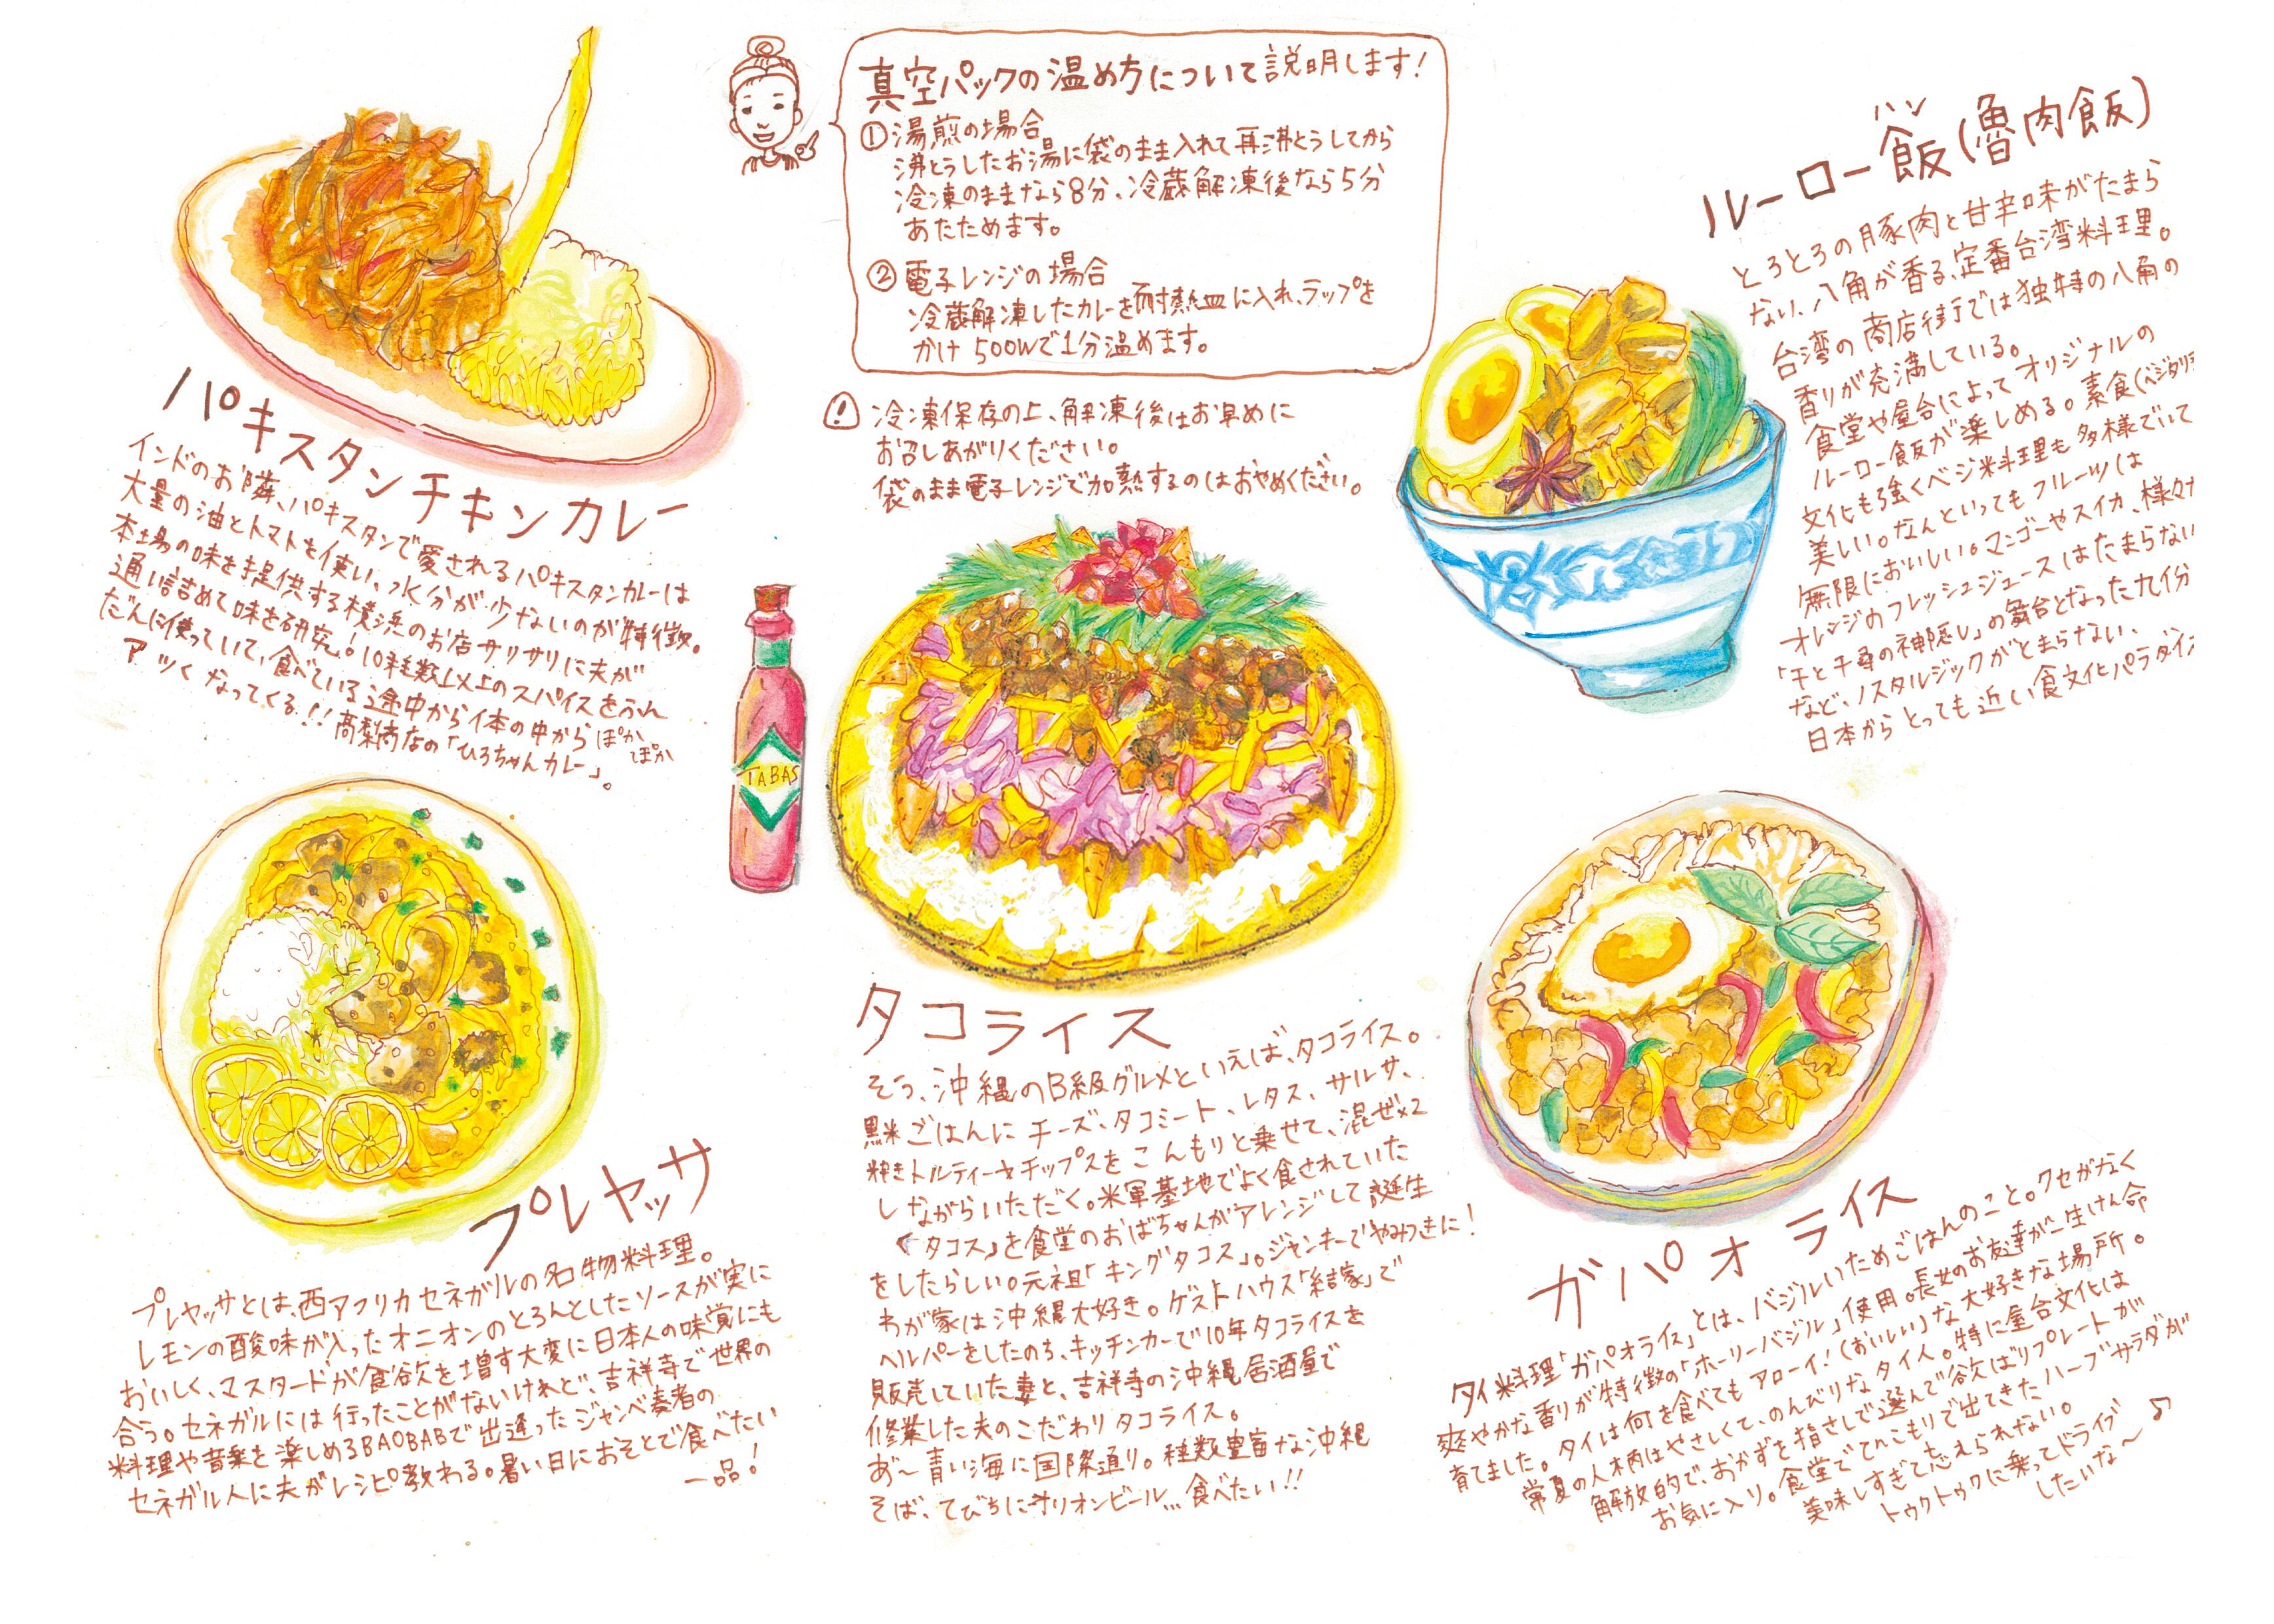 真空パックの温め方について説明します!
①湯煎の場合
沸とうしたお湯に袋のまま入れて再沸とうしてから
冷凍のままなら8分、冷蔵解凍後なら5分
あたためます。
②電子レンジの場合
冷蔵解凍したカレーを耐熱皿に入れ、ラップを
かけ500Wで1分温めます。
冷凍保存の上、解凍後はお早めに
お召しあがりください。
袋のまま電子レンジで加熱するのはおやめください。
パキスタンチキンカレー
インドのお隣、パキスタンで愛されるパキスタンカレーは
大量の油とトマトを使い、水分が少ないのが特徴。
本場の味を提供する横浜のお店サリサリに夫が
通い詰めて味を研究!10種類以上のスパイスをふん
だんに使っていて、食べている途中から体の中からぽかぽか
アツくなってくる!!高梨商店の「ひろちゃんカレー」。
TABAS
ルーロー飯(魯肉飯)
ハン
とろとろの豚肉と甘辛味がたまら
ない、八角が香る、定番台湾料理。
台湾の商店街では独特の八角の
香りが充満している。
食堂や屋台によってオリジナルの
ルーロー飯が楽しめる。素食(ベジタリ
文化も強くベジ料理も多様でいて
美しい。なんといってもフルーツは
無限においしい。マンゴーやスイカ、様々
オレンジのフレッシュジュースはたまらない
「千と千尋の神隠し」の舞台となった九份
など、ノスタルジックがとまらない、
日本からとっても近い食文化パラダイ
プレヤッサ
プレヤッサとは、西アフリカセネガルの名物料理。
レモンの酸味が入ったオニオンのとろんとしたソースが実に
おいしく、マスタードが食欲を増す大変に日本人の味覚にも
合う。セネガルには行ったことがないけれど、吉祥寺で世界の
料理や音楽を楽しめるBAOBABで出逢ったジャンベ奏者の
セネガル人に夫がレシピ教わる。暑い日におそとで食べたい
一品!
タコライス
そう、沖縄のB級グルメといえば、タコライス。
黒米ごはんにチーズ、タコミート、レタス、サルサ、
砕きトルティーヤチップスをこんもりと乗せて、混ぜ×2
しながらいただく。米軍基地でよく食されていた
「タコス」を食堂のおばちゃんがアレンジして誕生
をしたらしい。元祖「キングタコス」。ジャンキーでやみつきに!
わが家は沖縄大好き。ゲストハウス「結家」で
ヘルパーをしたのち、キッチンカーで10年タコライスを
販売していた妻と、吉祥寺の沖縄居酒屋で
修業した夫のこだわりタコライス。
あ〜青い海に国際通り。種類豊富な沖縄
そば、てびちにオリオンビール…食べたい!!
ガパオライス
タイ料理「ガパオライス」とは、バジルいためごはんのこと。クセがなく
爽やかな香りが特徴の「ホーリーバジル」使用。長女のお友達が一生けん命
育てました。タイは何を食べてもアローイ!(おいしい)な大好きな場所。
常夏の人柄はやさしくて、のんびりなタイ人。特に屋台文化は
解放的で、おかずを指さしで選んで欲ばりプレートが
お気に入り。食堂でてんこもりで出てきたハーブサラダが
美味しすぎて忘えられない。
トゥクトゥクに乗ってドライブ
したいな〜♪